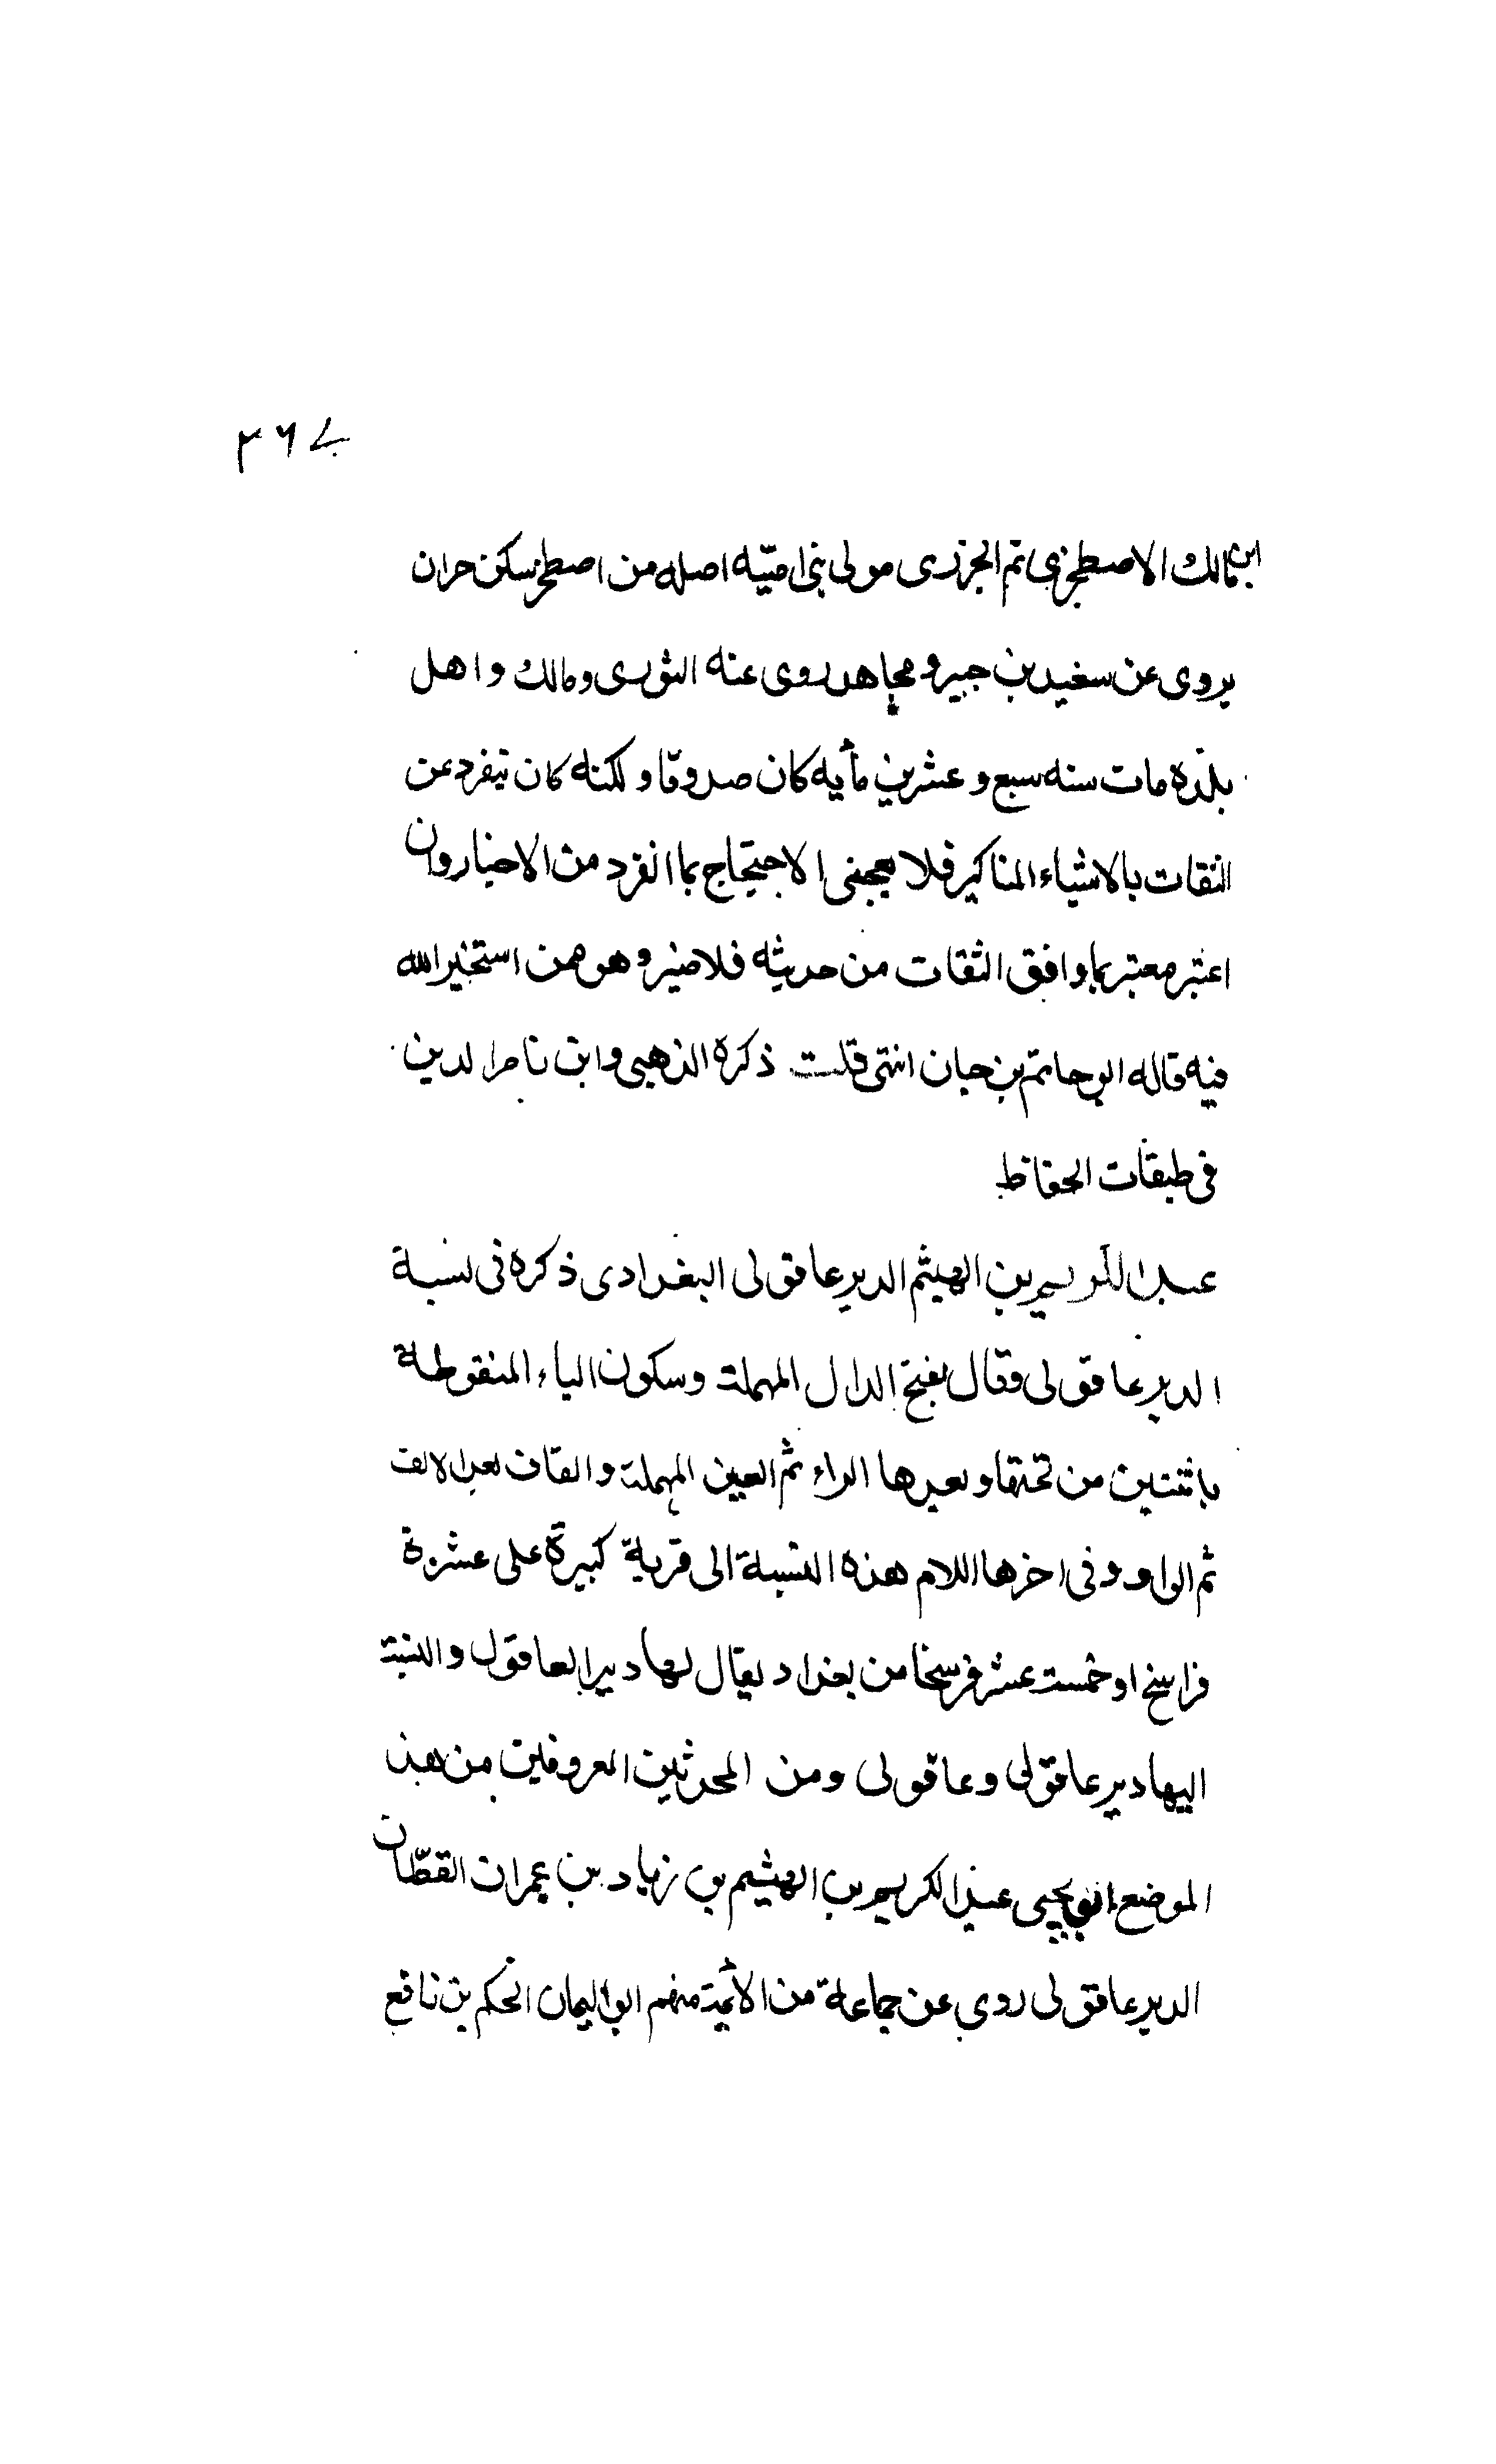 ٣٦٧
ابن مالك الاصطخرى ثم الجزرى مولى بنى اميّه اصله من اصطخر سكن حران
يروى عن سعيد بن جبير و مجاهد روى عنه الثورى و مالك و اهل
بلده مات سنه سبع و عشرين مأيه كان صدوقا و لكنه كان يتفرد عن
الثقات بالاشياء المناكير فلا يعجبنى الاحتجاج بما انفرد من الاخبار وان
اعتبر معتبر بما وافق الثقات من حديثه فلا ضير و هو ممن استخير الله
فيه قاله ابو حاتم بن حبان انتهى قلت ذكره الذهبى و ابن ناصر الدين
فى طبقات الحفاظ
عبد الكريم بن الهيثم الديرعاقولى البغدادى ذكره فى نسبة
الديرعاقولى فقال بفتح الدال المهملة وسكون الياء المنقوطة
باثنتين من تحتها وبعدها الراء ثم العين المهملة والقاف بعد الالف
ثم الواو وفى اخرها اللام هذه النسبة الى قرية كبيرة على عشرة
فراسخ او خمسة عشر فرسخا من بغداد يقال لها دير العاقول والنسبة
اليها ديرعاقولى وعاقولى ومن المحدثين المعروفين من هذا
الموضع ابو يحيى عبد الكريم بن الهيثم بن زياد بن عمران القطّان
الديرعاقولى روى عن جماعة من الأئمة منهم ابو اليمان الحكم بن نافع